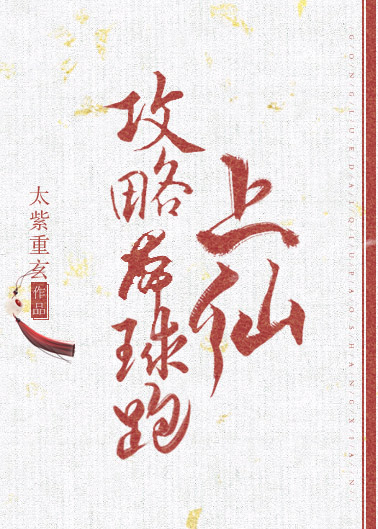 攻略带球跑
上仙
太紫重玄
作品
GONGLUEDAIQIUPAOSHANGXIAN